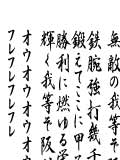 無敵の我等そ
鉄腕強打幾千
鍛えてこゝに甲子
勝利に燃ゆる栄
輝く我等そ阪神
オウオウオウオウ
フレフレフレフレ